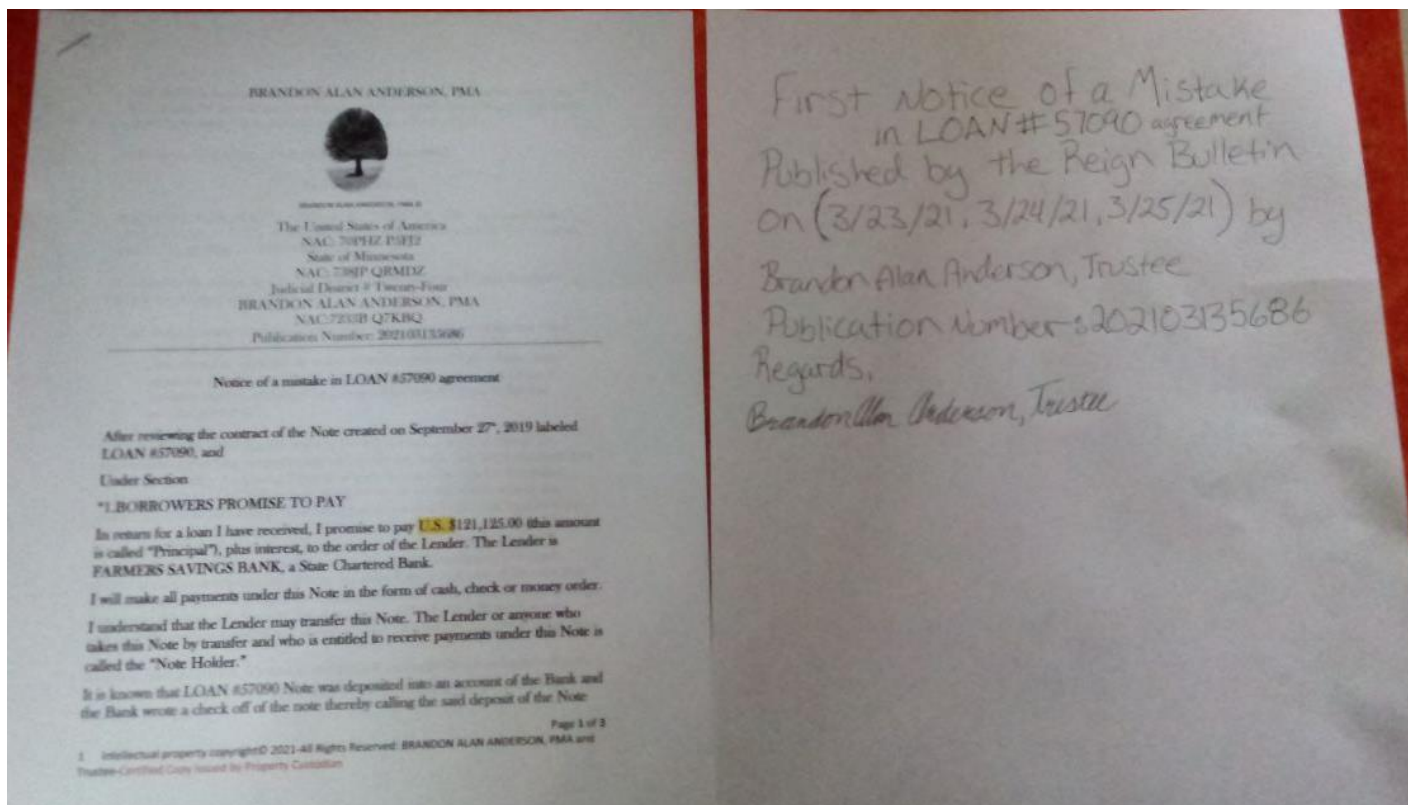 BRANDON ALAN ANDERSON, PMA
The United States of America
NAC: 70PHZ P5FJ2
State of Minnesota
NAC: 738JP QRMDZ
Judicial District # Twenty-Four
BRANDON ALAN ANDERSON, PMA
NAC:7233B Q7KBQ
Publication Number: 202103135686
Notice of a mistake in LOAN #57090 agreement
After reviewing the contract of the Note created on September 27", 2019 labeled
LOAN #57090, and
Under Section
"1.BORROWERS PROMISE TO PAY
In return for a loan I have received, I promise to pay U.S. $121,125.00 (this amount
is called "Principal"), plus interest, to the order of the Lender. The Lender is
FARMERS SAVINGS BANK, a State Chartered Bank.
I will make all payments under this Note in the form of cash, check or money order.
I understand that the Lender may transfer this Note. The Lender or anyone who
takes this Note by transfer and who is entitled to receive payments under this Note is
called the "Note Holder."
It is known that LOAN #57090 Note was deposited into an account of the Bank and
the Bank wrote a check off of the note thereby calling the said deposit of the Note
Page 1 of 3
1 Intellectual property copyright© 2021-All Rights Reserved: BRANDON ALAN ANDERSON, PMA and
Trustee-Certified Copy Issued by Property Custodian
First Notice of a Mistake
in LOAN # 57090 agreement
Published by the Reign Bulletin
on (3/23/21, 3/24/21, 3/25/21) by
Brandon Alan Anderson, Trustee
Publication Number: 202103135686
Regards,
Brandon Alan Anderson, Trustee